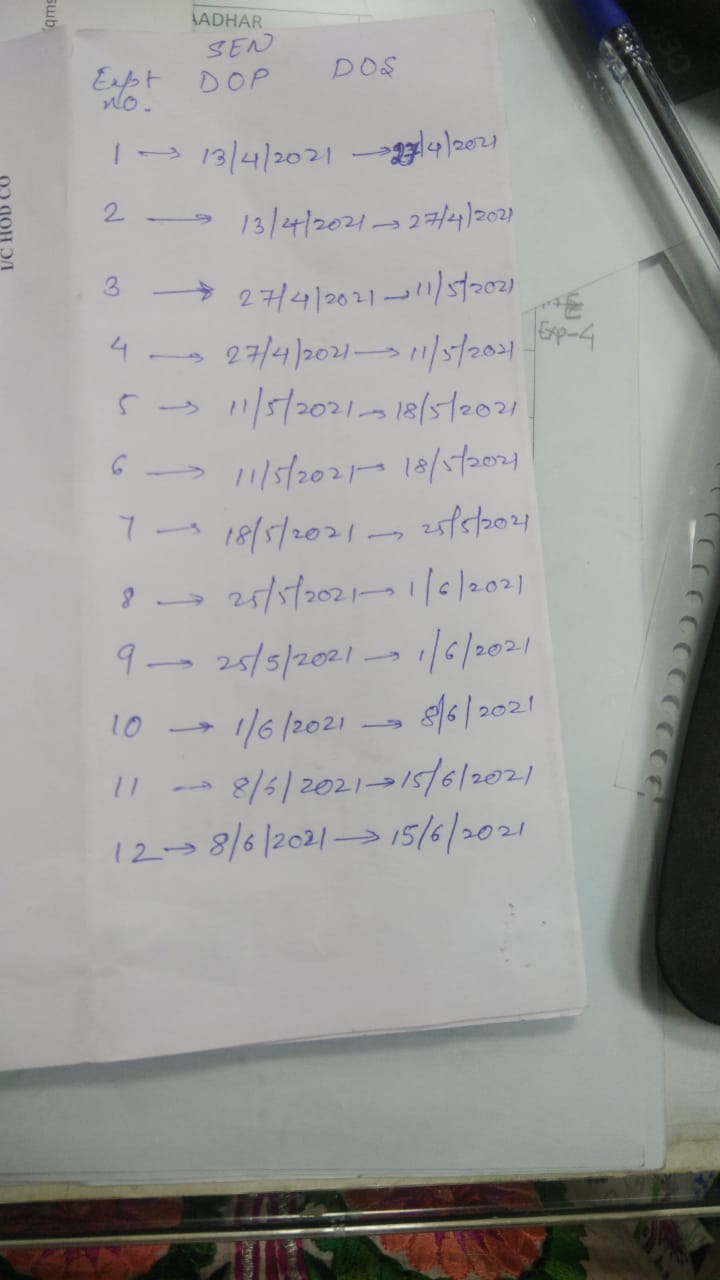 qms
AADHAR
I/C HOD CO
SEN
Expt no. DOP DOS
1 → 13/4/2021 → 27/4/2021
2 → 13/4/2021 → 27/4/2021
3 → 27/4/2021 → 11/5/2021
4 → 27/4/2021 → 11/5/2021
5 → 11/5/2021 → 18/5/2021
6 → 11/5/2021 → 18/5/2021
7 → 18/5/2021 → 25/5/2021
8 → 25/5/2021 → 1/6/2021
9 → 25/5/2021 → 1/6/2021
10 → 1/6/2021 → 8/6/2021
11 → 8/6/2021 → 15/6/2021
12 → 8/6/2021 → 15/6/2021
Exp-4